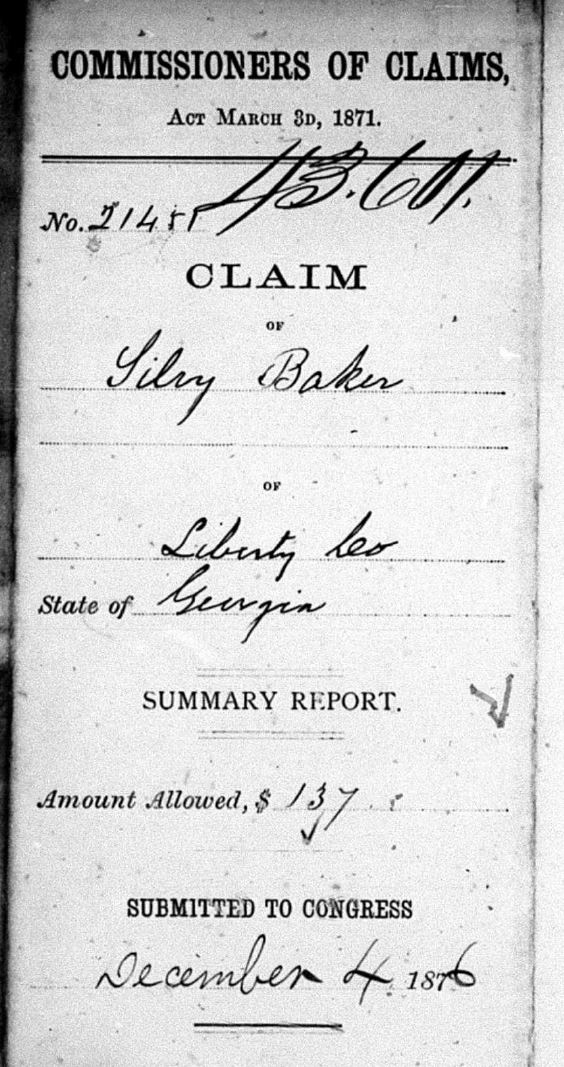 COMMISSIONERS OF CLAIMS,
ACT MARCH 3D, 1871.
43.601.
No. 21451
CLAIM
OF
Silvy Baker
OF
Liberty Co
State of Georgia
SUMMARY REPORT.
Amount Allowed, $ 137
SUBMITTED TO CONGRESS
December 4 1876